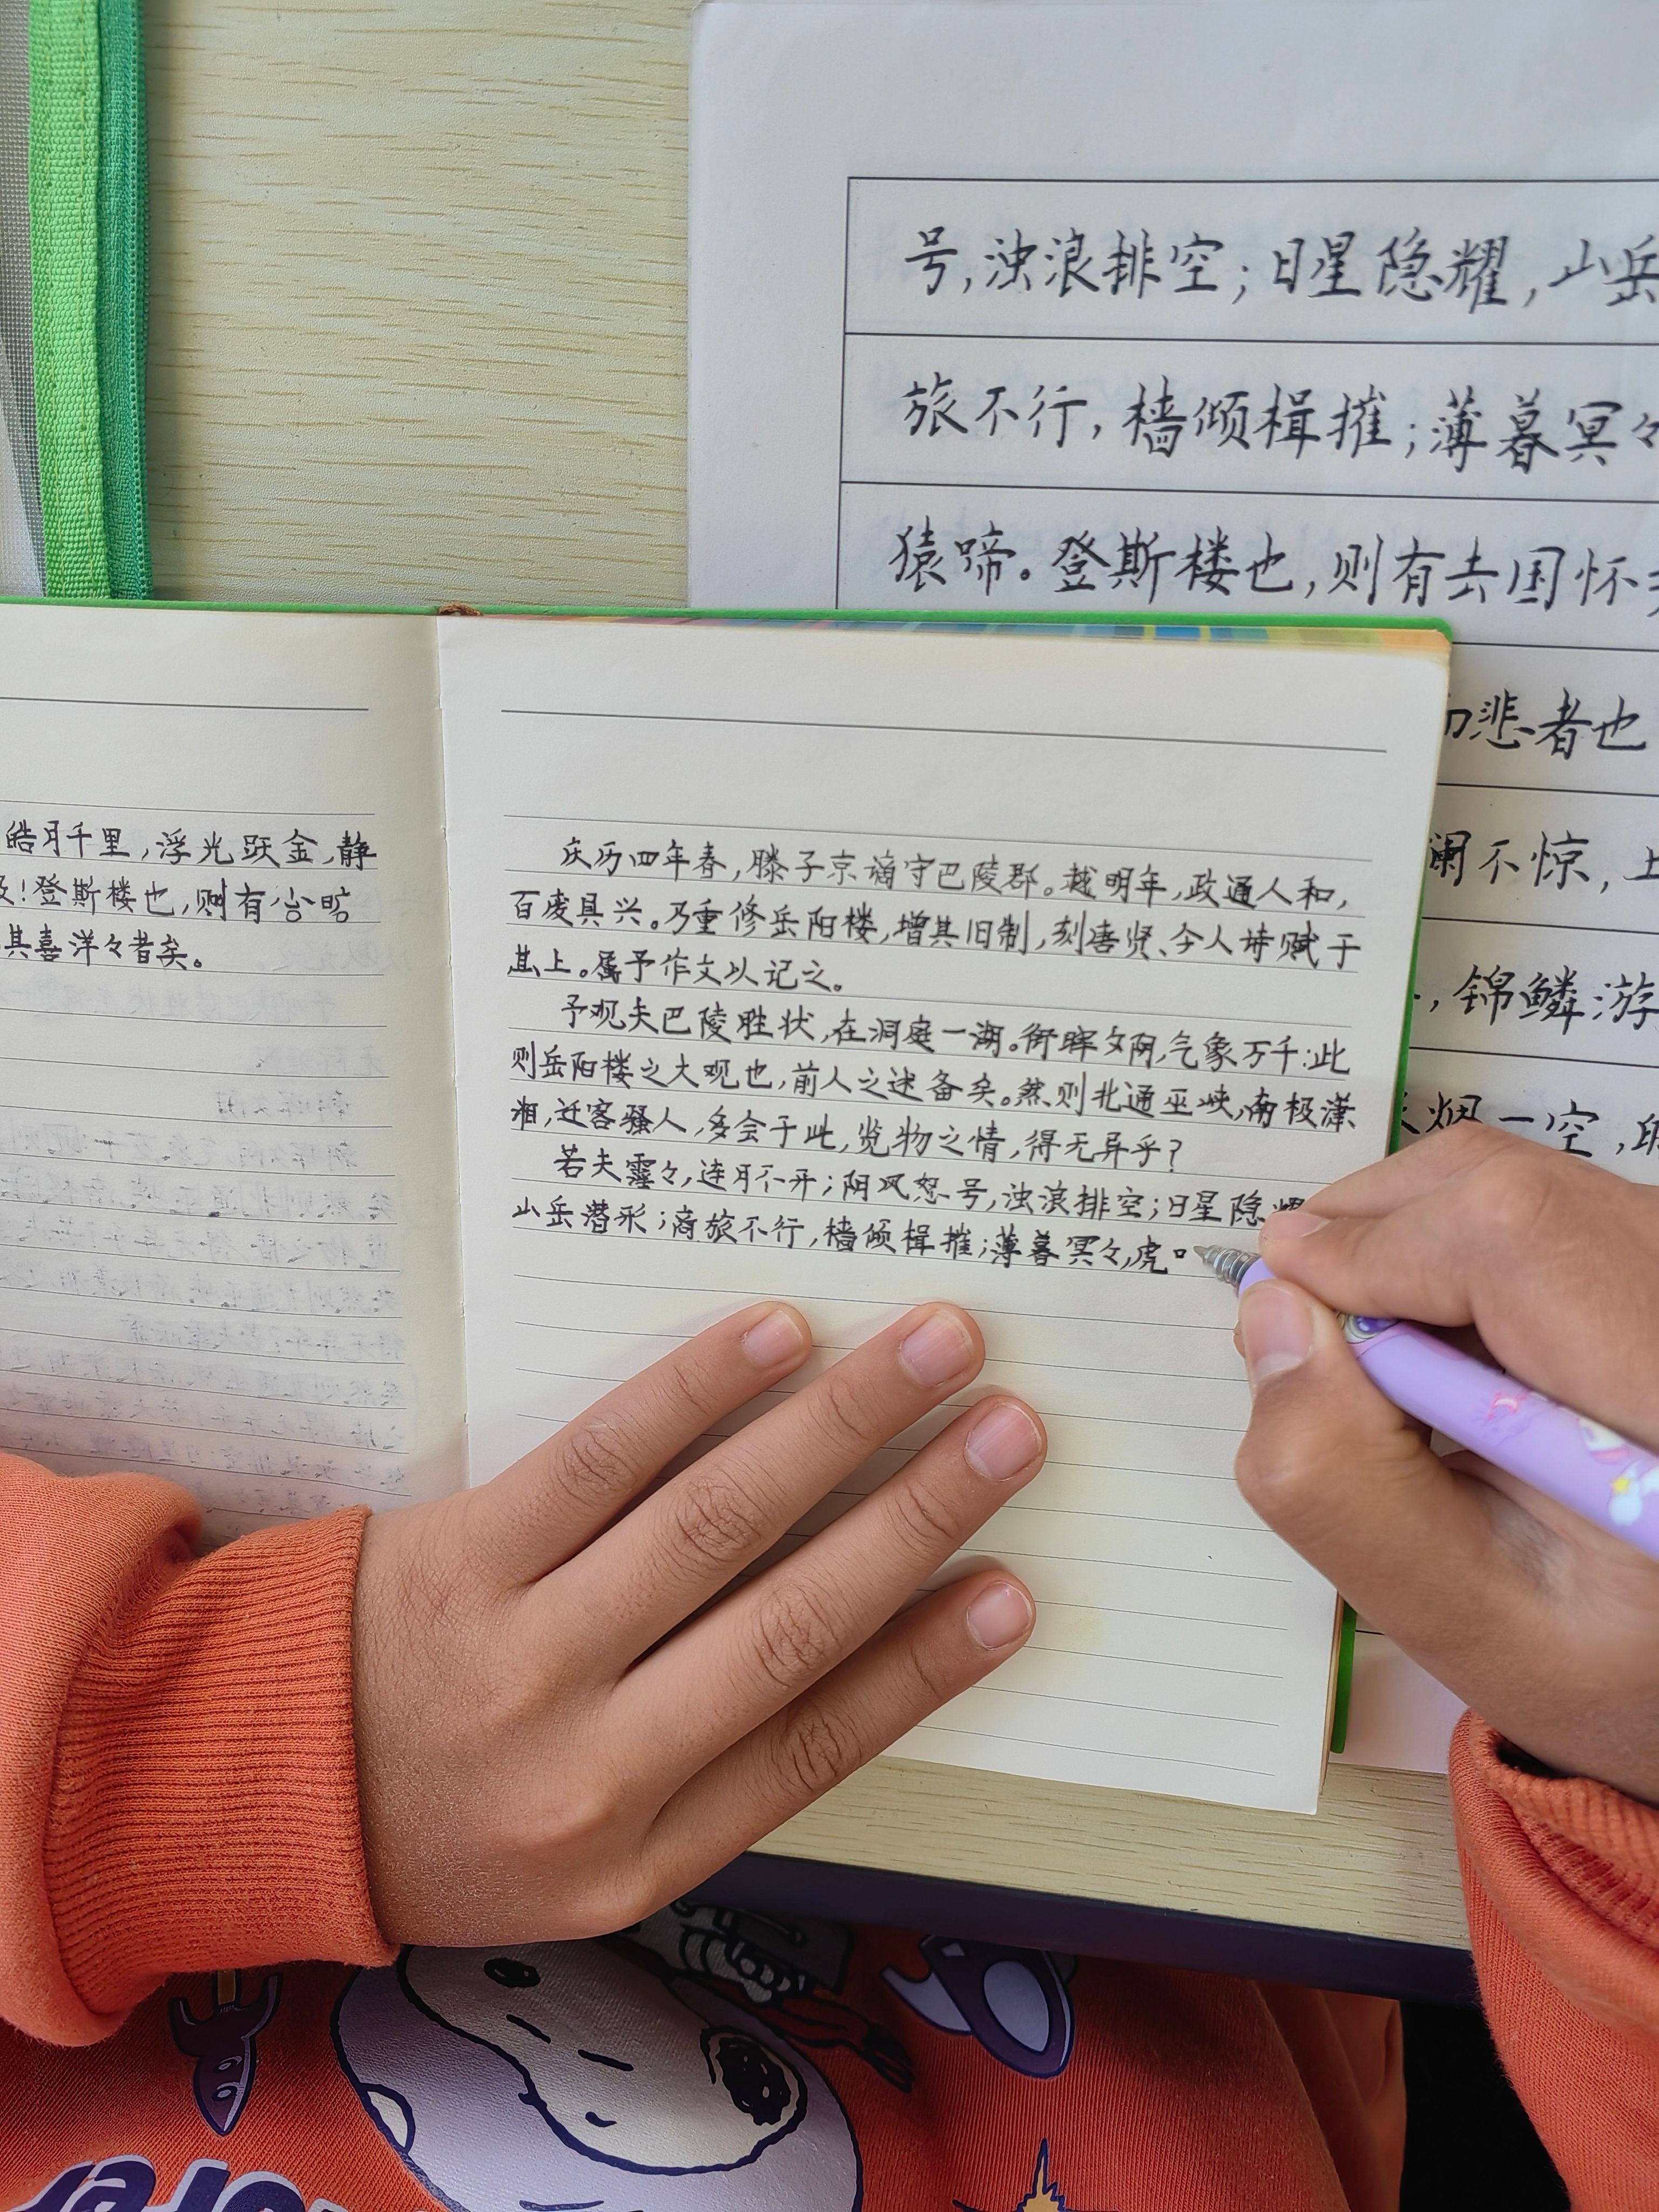 号,浊浪排空;日星隐耀,山岳
旅不行,樯倾楫摧;薄暮冥々
猿啼。登斯楼也,则有去国怀
悲者也
澜不惊,上
,锦鳞游
烟一空,
皓月千里,浮光跃金,静
!登斯楼也,则有心旷
其喜洋々者矣。
庆历四年春,滕子京谪守巴陵郡。越明年,政通人和,
百废具兴。乃重修岳阳楼,增其旧制,刻唐贤、今人诗赋于
其上。属予作文以记之。
予观夫巴陵胜状,在洞庭一湖。衔晖夕阴,气象万千:此
则岳阳楼之大观也,前人之述备矣。然则北通巫峡,南极潇
湘,迁客骚人,多会于此,览物之情,得无异乎?
若夫霪々,连月不开;阴风怒号,浊浪排空;日星隐耀
山岳潜形;商旅不行,樯倾楫摧;薄暮冥々,虎口